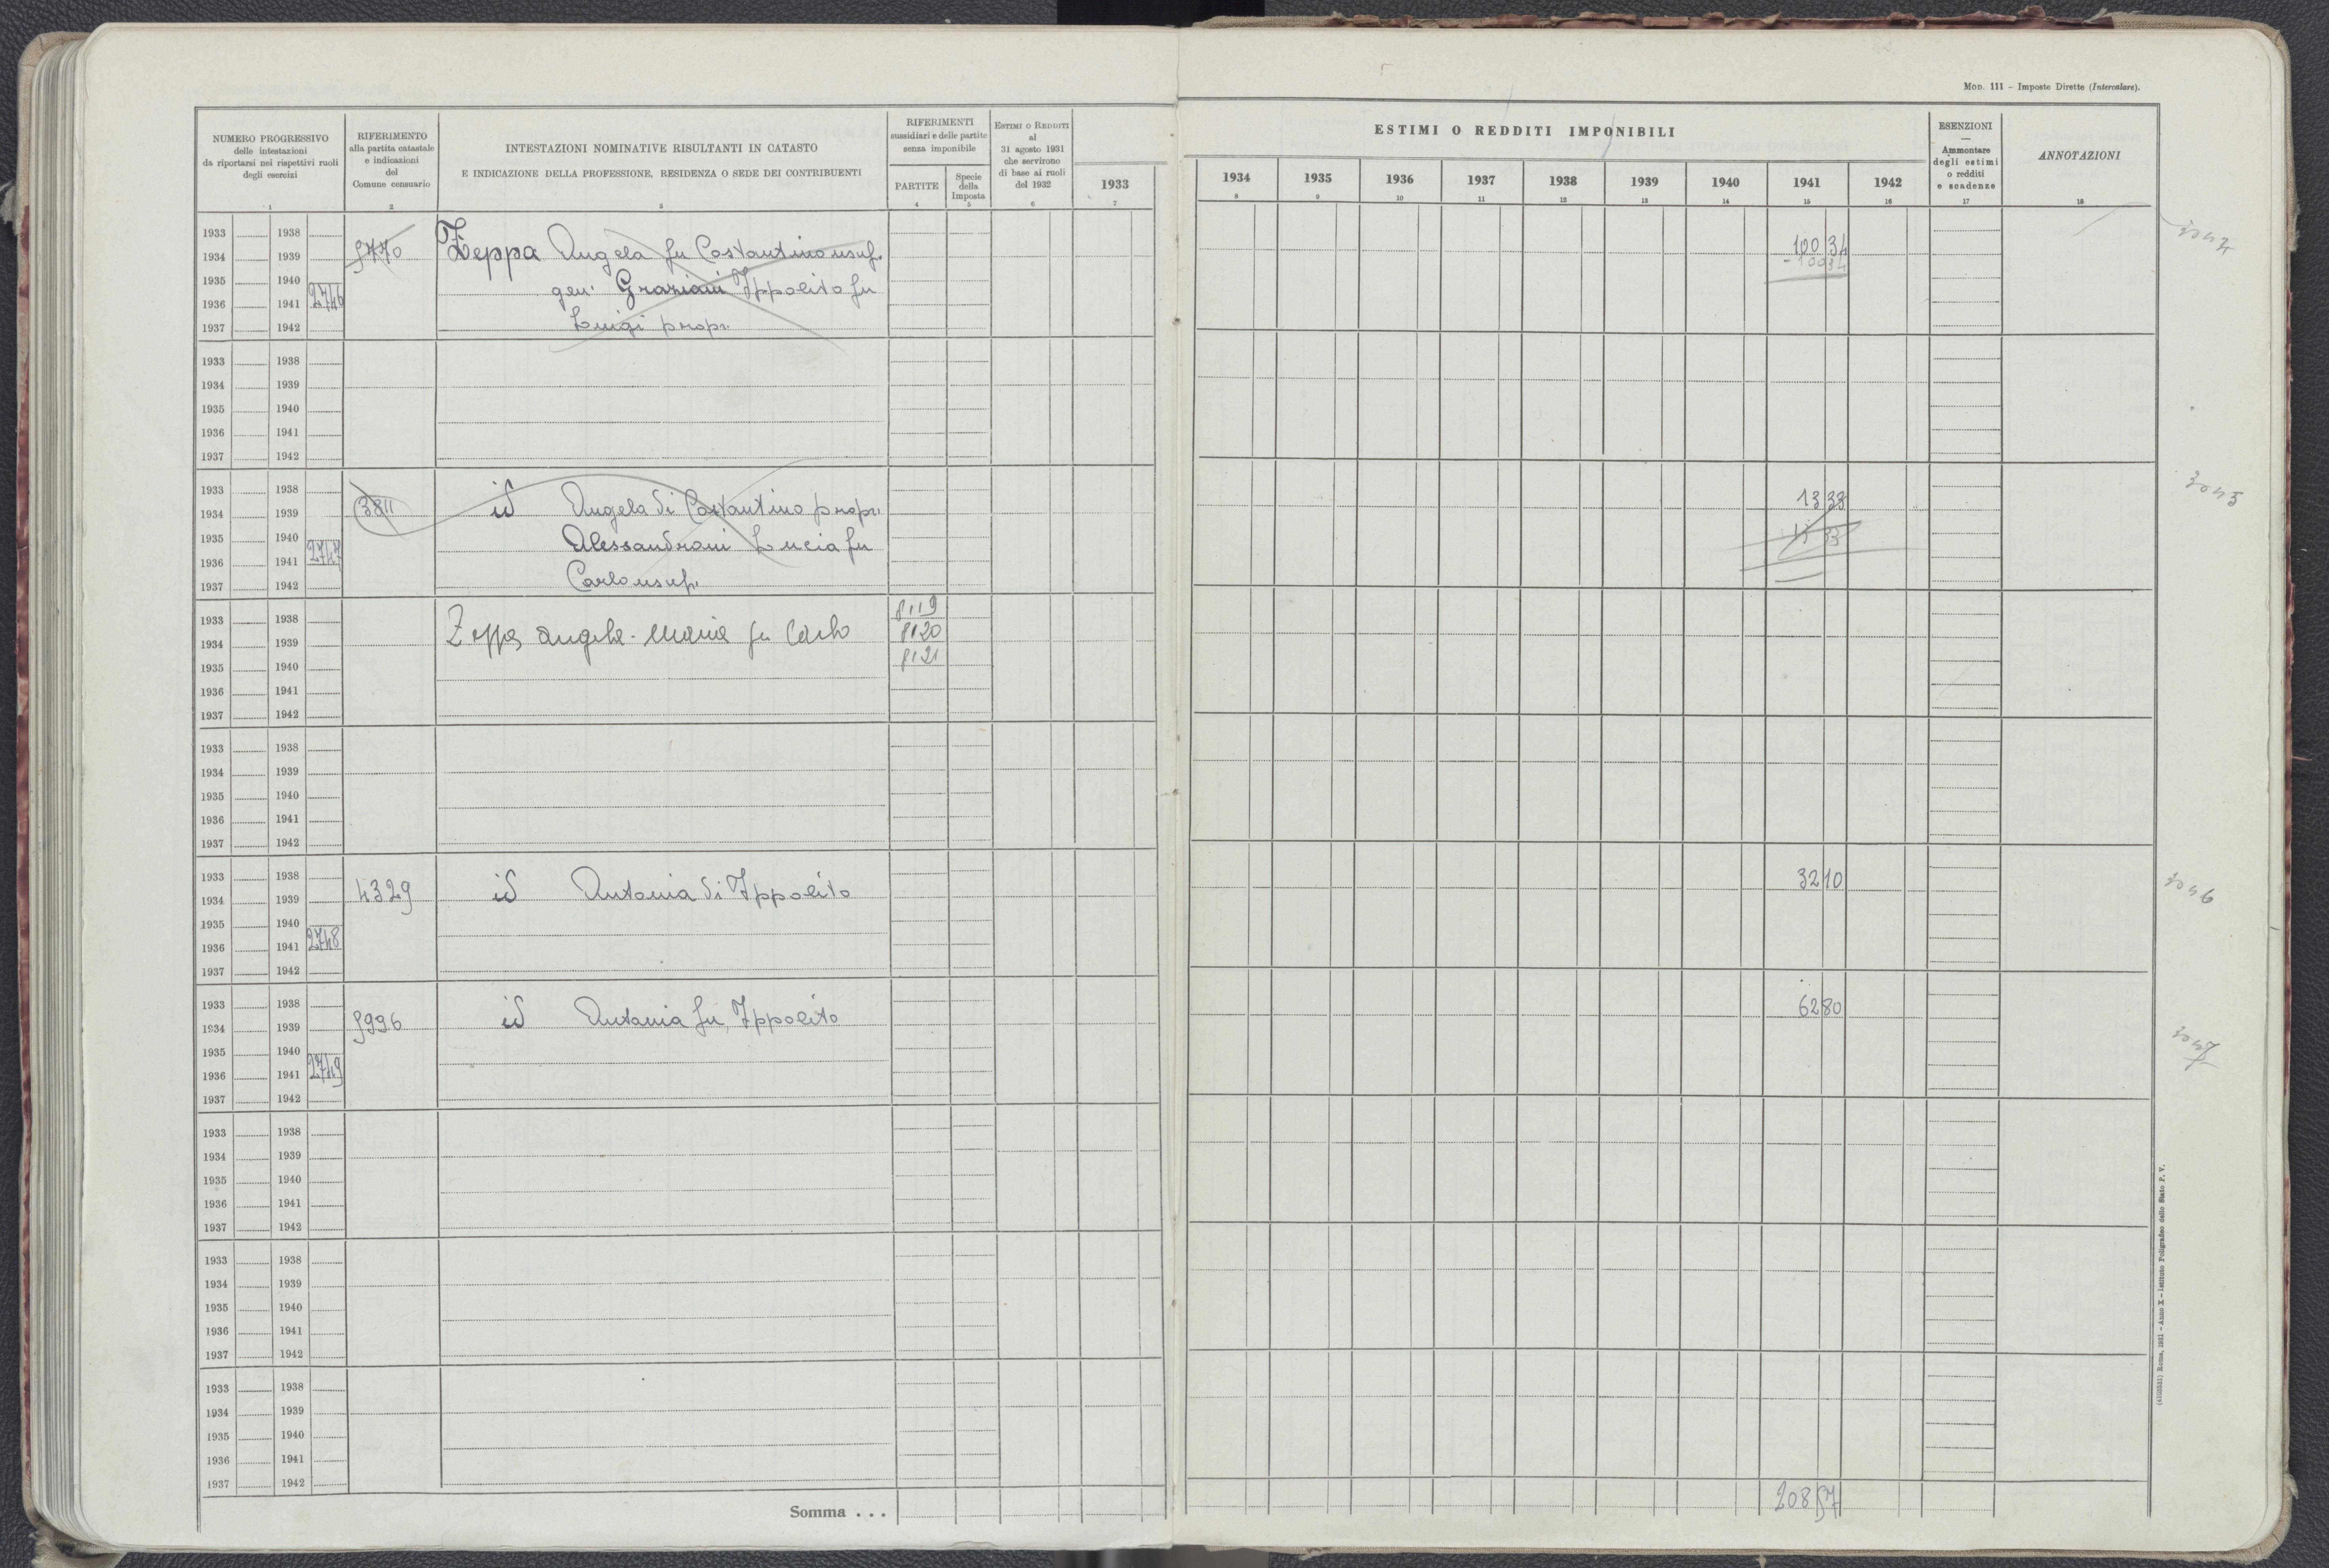 Mod. 111 – Imposte Dirette (Intercalare).
NUMERO PROGRESSIVO
delle intestazioni
da riportarsi nei rispettivi ruoli
degli esercizi
1
RIFERIMENTO
alla partita catastale
e indicazioni
del
Comune censuario
2
INTESTAZIONI NOMINATIVE RISULTANTI IN CATASTO
E INDICAZIONE DELLA PROFESSIONE, RESIDENZA O SEDE DEI CONTRIBUENTI
3
RIFERIMENTI
sussidiari e delle partite
senza imponibile
PARTITE
4
Specie
della
Imposta
5
Estimi o Redditi
al
31 agosto 1931
che servirono
di base ai ruoli
del 1932
6
1933
7
ESTIMI O REDDITI IMPONIBILI
1934 1935 1936 1937 1938 1939 1940 1941 1942
8 9 10 11 12 13 14 15 16
ESENZIONI
—
Ammontare
degli estimi
o redditi
e scadenze
17
ANNOTAZIONI
18
1933 1938
1934 1939 5770 Zeppa Angela fu Costantino usuf. 100 34
1935 1940 gen. Graziani Ippolito fu - 100 34
1936 1941 2746
1937 1942 Luigi propr.
1933 1938
1934 1939
1935 1940
1936 1941
1937 1942
1933 1938 3045
1934 1939 3811 id Angela di Costantino propr. 13 33
1935 1940 Alessandroni Lucia fu 13 33
1936 1941 2747
1937 1942 Carlo usuf.
1933 1938 8119
1934 1939 Zeppa Angela-Maria fu Carlo 8120
1935 1940 8121
1936 1941
1937 1942
1933 1938
1934 1939
1935 1940
1936 1941
1937 1942
1933 1938
1934 1939 4329 id Antonia di Ippolito 32 10 3046
1935 1940
1936 1941 2748
1937 1942
1933 1938
1934 1939 5996 id Antonia fu Ippolito 62 80
1935 1940 3047
1936 1941 2749
1937 1942
1933 1938
1934 1939
1935 1940
1936 1941
1937 1942
1933 1938
1934 1939
1935 1940
1936 1941
1937 1942
1933 1938
1934 1939
1935 1940
1936 1941
1937 1942
Somma . . . 208 57
Roma, 1931 – Anno X – Istituto Poligrafico dello Stato P. V.